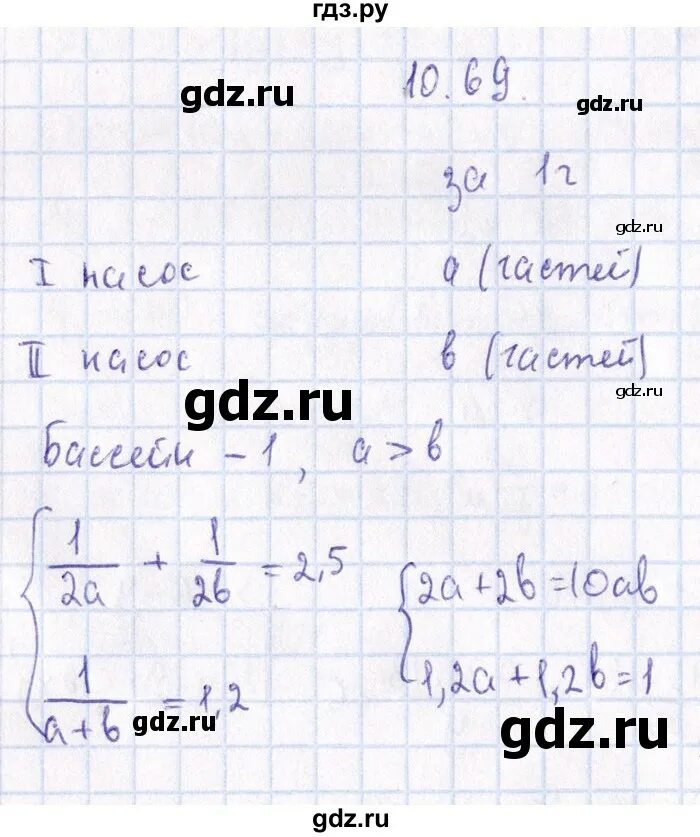 гдз.ру
gdz.ru
10.69.
gdz.ru
за 1 ч
gdz.ru
I насос a (частей)
II насос b (частей)
gdz.ru
gdz.ru
Бассейн – 1, a > b
{ 1/2a + 1/2b = 2,5 { 2a + 2b = 10ab
1/a+b = 1,2 1,2a + 1,2b = 1
gdz.ru
gdz.ru
gdz.ru